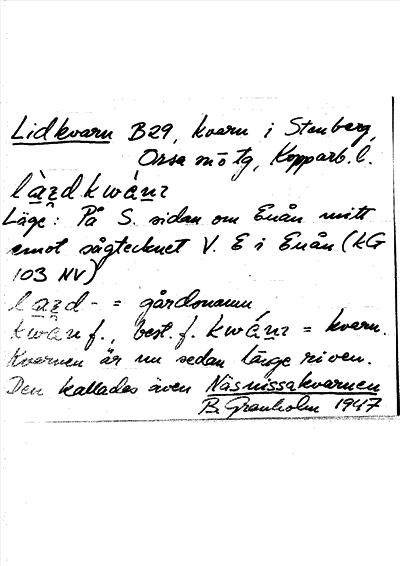 Lidkvarn B29, kvarn i Stenberg,
Orsa sn ö tg, Kopparb. l.
Läge: På S. sidan om Enån mitt
emot sågtecknet V. E i Enån (KG
103 NV)
= gårdsnamn
f., best. f. = kvarn.
Kvarnen är nu sedan länge riven.
Den kallades även Näsnissakvarnen
B. Granholm 1947